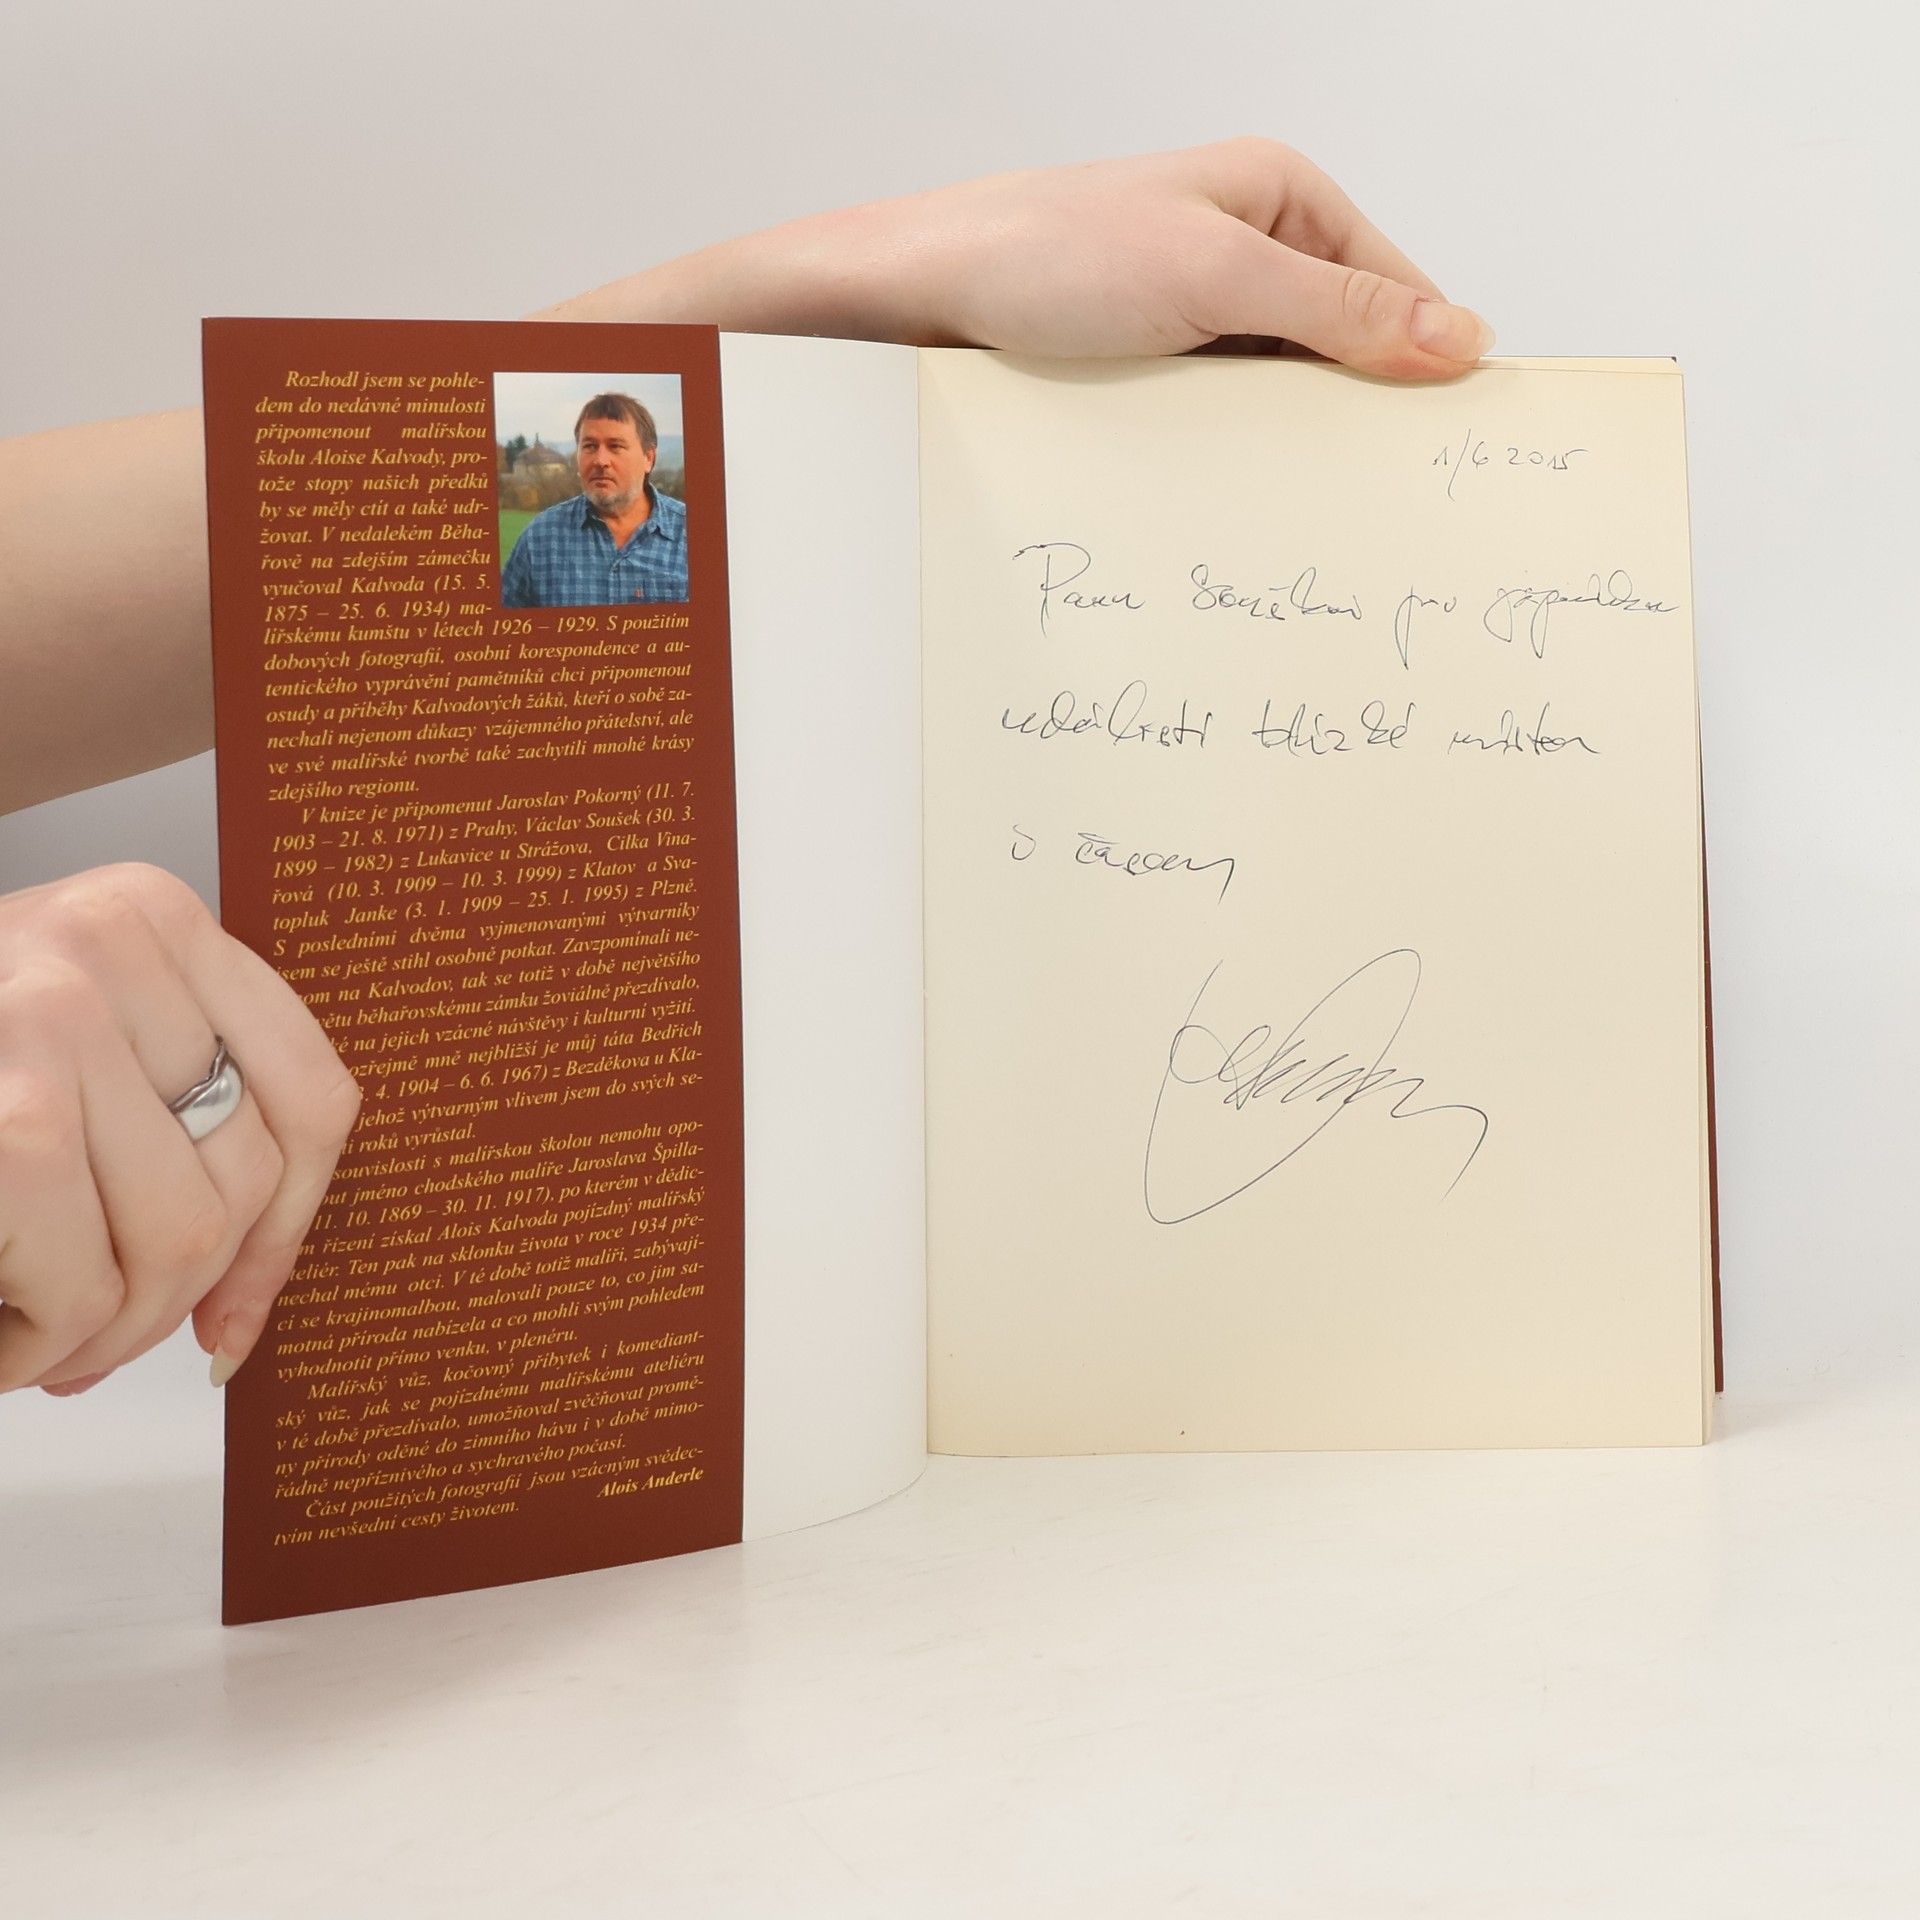 Rozhodl jsem se pohle-
dem do nedávné minulosti
připomenout malířskou
školu Aloise Kalvody, pro-
tože stopy našich předků
by se měly ctít a také udr-
žovat. V nedalekém Běha-
řově na zdejším zámečku
vyučoval Kalvoda (15. 5.
1875 – 25. 6. 1934) ma-
lířskému kumštu v létech 1926 – 1929. S použitím
dobových fotografií, osobní korespondence a au-
tentického vyprávění pamětníků chci připomenout
osudy a příběhy Kalvodových žáků, kteří o sobě za-
nechali nejenom důkazy vzájemného přátelství, ale
ve své malířské tvorbě také zachytili mnohé krásy
zdejšího regionu.
V knize je připomenut Jaroslav Pokorný (11. 7.
1903 – 21. 8. 1971) z Prahy, Václav Soušek (30. 3.
1899 – 1982) z Lukavice u Strážova, Cilka Vina-
řová (10. 3. 1909 – 10. 3. 1999) z Klatov a Sva-
topluk Janke (3. 1. 1909 – 25. 1. 1995) z Plzně.
S posledními dvěma vyjmenovanými výtvarníky
jsem se ještě stihl osobně potkat. Zavzpomínali ne-
om na Kalvodov, tak se totiž v době největšího
větu běhařovskému zámku žoviálně přezdívalo,
ké na jejich vzácné návštěvy i kulturní vyžití.
ozřejmě mně nejbližší je můj táta Bedřich
. 4. 1904 – 6. 6. 1967) z Bezděkova u Kla-
jehož výtvarným vlivem jsem do svých se-
i roků vyrůstal.
souvislosti s malířskou školou nemohu opo-
out jméno chodského malíře Jaroslava Špilla-
11. 10. 1869 – 30. 11. 1917), po kterém v dědic-
m řízení získal Alois Kalvoda pojízdný malířský
teliér. Ten pak na sklonku života v roce 1934 pře-
nechal mému otci. V té době totiž malíři, zabývají-
cí se krajinomalbou, malovali pouze to, co jim sa-
motná příroda nabízela a co mohli svým pohledem
vyhodnotit přímo venku, v plenéru.
Malířský vůz, kočovný příbytek i komediant-
ský vůz, jak se pojízdnému malířskému ateliéru
v té době přezdívalo, umožňoval zvěčňovat promě-
ny přírody oděné do zimního hávu i v době mimo-
řádně nepříznivého a sychravého počasí.
Část použitých fotografií jsou vzácným svědec-
tvím nevšední cesty životem.
Alois Anderle
1/6 2015
Panu pro
události blízké